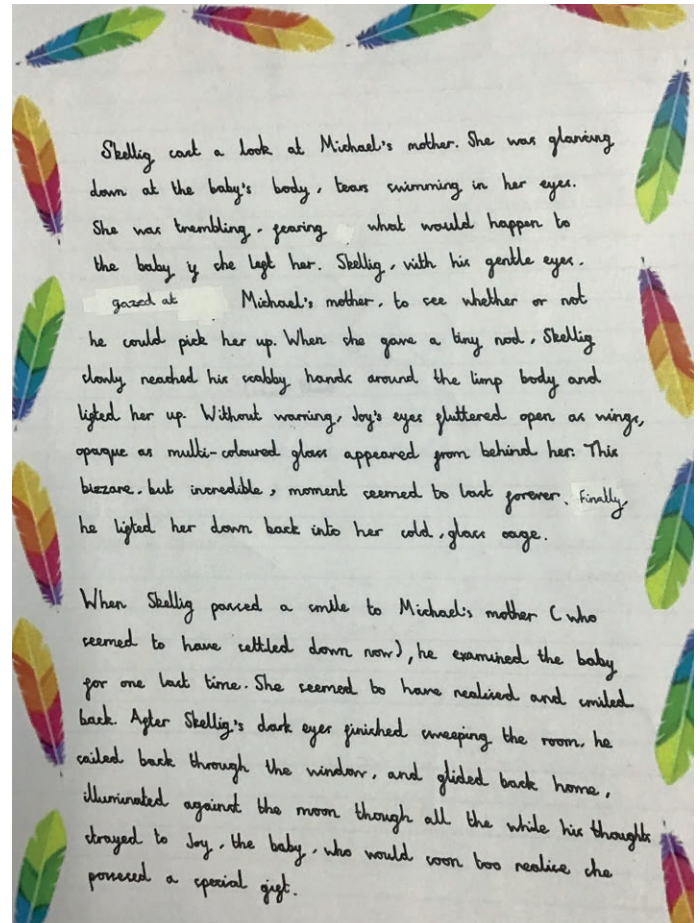 Skellig cast a look at Michael's mother. She was glancing
down at the baby's body, tears swimming in her eyes.
She was trembling, fearing what would happen to
the baby if she left her. Skellig, with his gentle eyes,
gazed at Michael's mother, to see whether or not
he could pick her up. When she gave a tiny nod, Skellig
slowly reached his scabby hands around the limp body and
lifted her up. Without warning, Joy's eyes fluttered open as wings,
opaque as multi-coloured glass appeared from behind her. This
bizzare, but incredible, moment seemed to last forever. Finally,
he lifted her down back into her cold, glass cage.
When Skellig passed a smile to Michael's mother (who
seemed to have settled down now), he examined the baby
for one last time. She seemed to have realised and smiled
back. After Skellig's dark eyes finished sweeping the room, he
sailed back through the window, and glided back home,
illuminated against the moon though all the while his thoughts
strayed to Joy, the baby, who would soon too realise she
possesed a special gift.